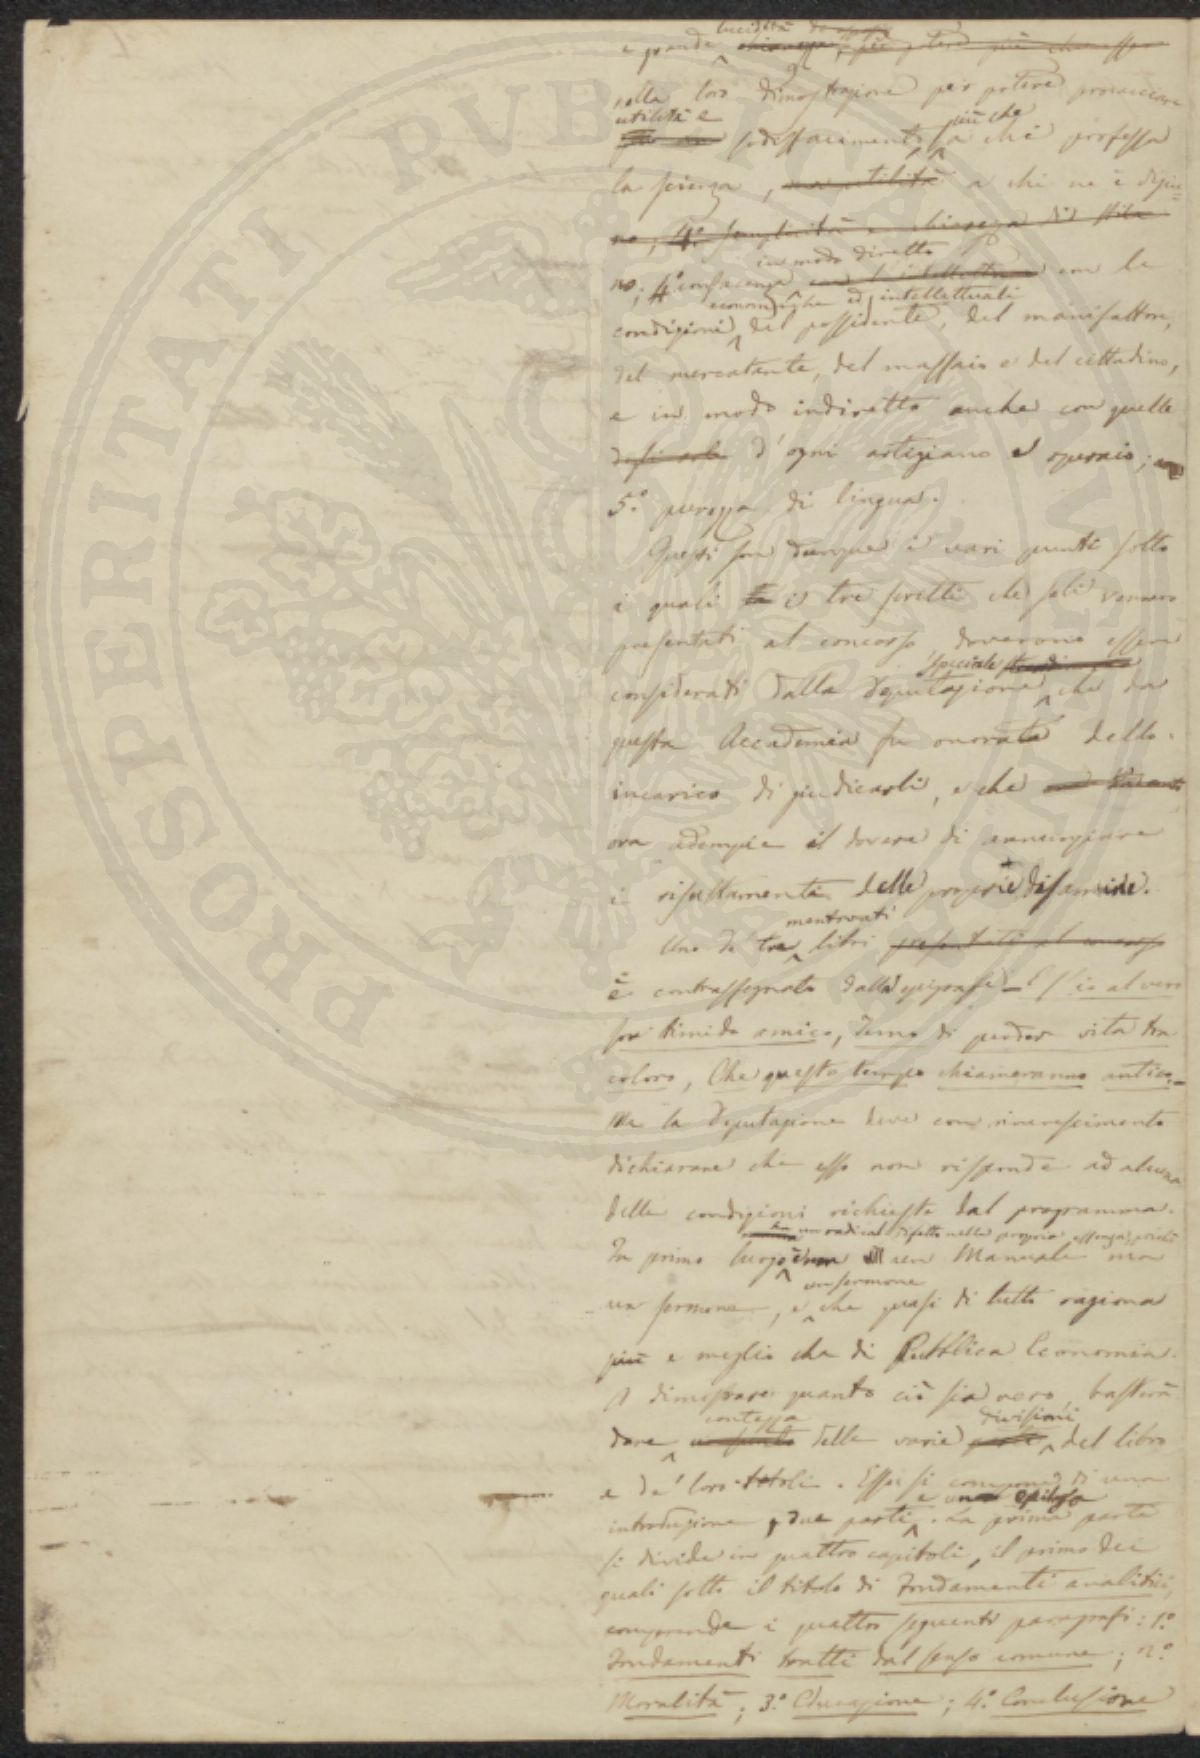 e grande lucidità
nella loro dimostrazione per potere procacciare
utilità e sodisfacimento più che a chi professa
la scienza, ma utilità a chi ne è digiu=
no; 4.° semplicità e chiarezza di stile
no; 4.° confacenza in modo diretto con le
condizioni economiche ed intellettuali del possidente, del manifattore,
del mercatante, del massaio e del cittadino,
e in modo indiretto anche con quelle
d'ogni artigiano e operaio;
5.° purezza di lingua.
Questi son dunque i vari punti sotto
i quali i tre scritti che soli vennero
presentati al concorso doverono essere
considerati dalla Deputazione speciale che da
questa Accademia fu onorata dello
incarico di giudicarli, e che
ora adempie il dovere di annunziare
i risultamenti delle proprie disamine.
Uno de' tre mentovati libri presentati al concorso
è contrassegnato dalla epigrafe = E s'io al vero
son timido amico, Temo di perder vita tra
coloro, Che questo tempo chiameranno antico =
Ma la Deputazione deve con rincrescimento
dichiarare che esso non risponde ad alcuna
delle condizioni richieste dal programma.
In primo luogo ha un radical difetto nella propria essenza, poichè non è un Manuale ma
un sermone, e un sermone che quasi di tutto ragiona
più e meglio che di Pubblica Economia.
A dimostrare quanto ciò sia vero, basterà
dare contezza delle varie parti divisioni del libro
e de' loro titoli. Esso si compone di una
introduzione, due parti e un epilogo. La prima parte
si divide in quattro capitoli, il primo dei
quali sotto il titolo di Fondamenti analitici,
comprende i quattro seguenti paragrafi: 1.°
Fondamenti tratti dal senso comune; 2.°
Moralità; 3.° Educazione; 4.° Conclusione
PROSPERITATI PUBLICAE AUGENDAE